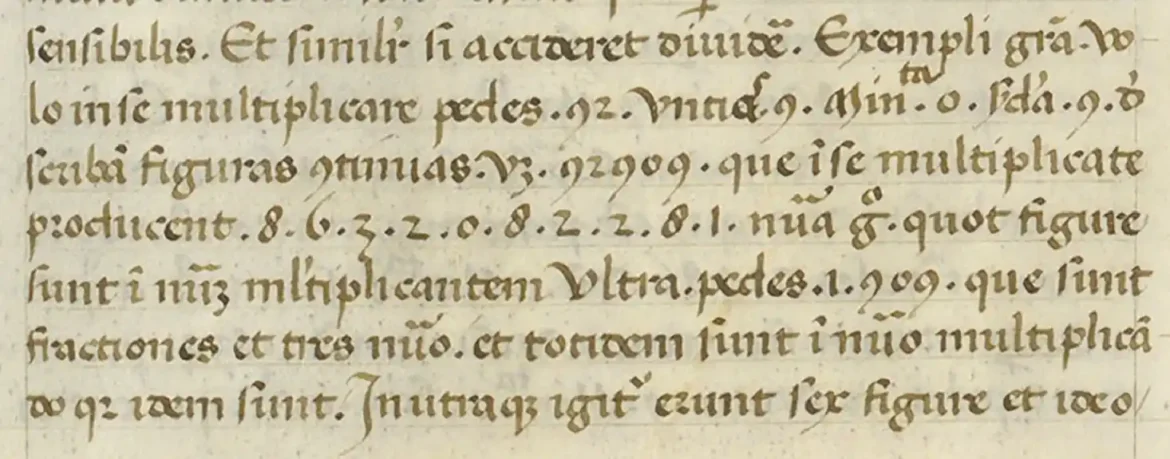 sensibilis. Et similr̃ si accideret diuidẽ. Exempli grã. vo
lo in se multiplicare pedes. 92. vntias. 9. Min.ta 0. sc̃da. 9. d̃
scribã figuras 9tinuas. vꝫ. 92909. que ĩ se multiplicate
producent. 8. 6. 3. 2. 0. 8. 2. 2. 8. 1. nũa g̊. quot figure
sunt ĩ nũꝫ ml̃tiplicantem Vltra. pedes. .1. 909. que sunt
fractiones et tres nũo. et totidem sunt ĩ nũo multiplicã
do qꝛ idem sunt. In utraqꝫ igit᷑ erunt sex figure et ideo/